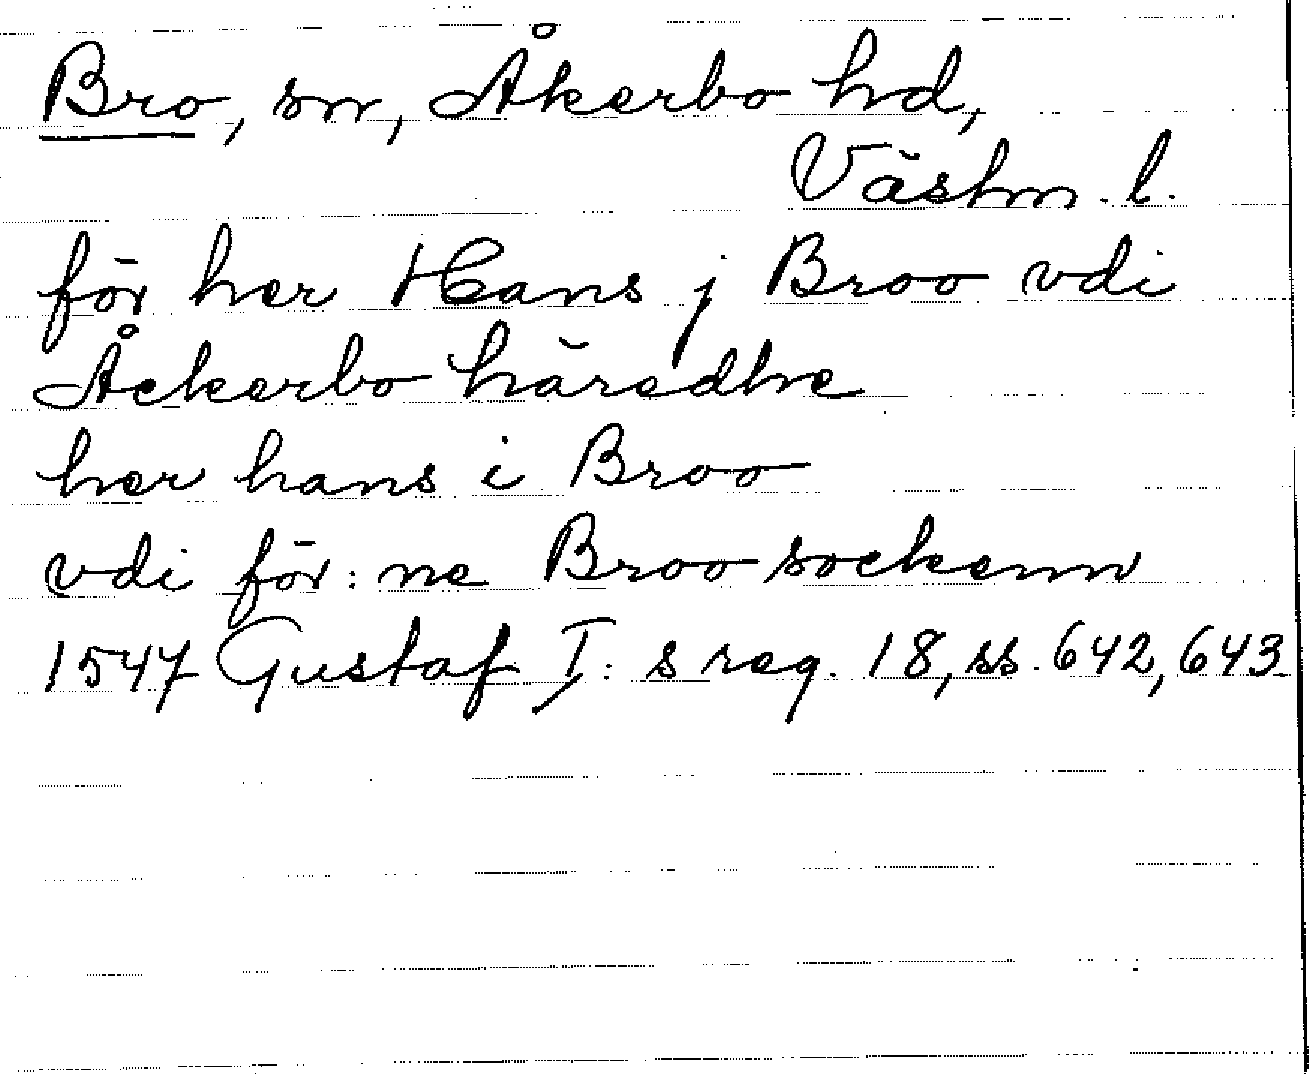 Bro, sn, Åkerbo hd,
Västm. l.
för her Hans j Broo vdi
Åckerbo häredhe
her hans i Broo
vdi för: ne Broo sockenn
1547 Gustaf I: s reg. 18, ss. 642, 643